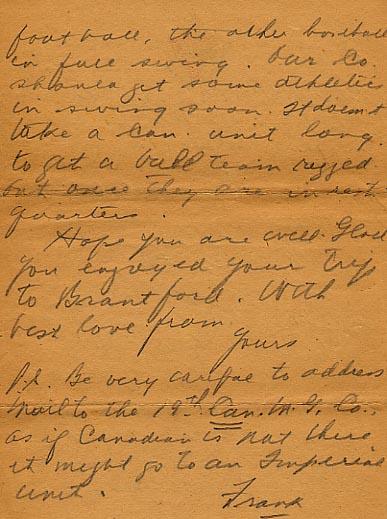 football, the other baseball
in full swing. Our Co.
should get some athletics
in swing soon. It doesn't
take a Can. unit long
to get a ball team rigged
out once they are in rest
quarters.
Hope you are well. Glad
you enjoyed your trip
to Brantford. With
best love from
Yours
P.S. Be very careful to address
mail to the 19th Can. M. G. Co.,
as if Canadian is not there
it might go to an Imperial
unit.
Frank